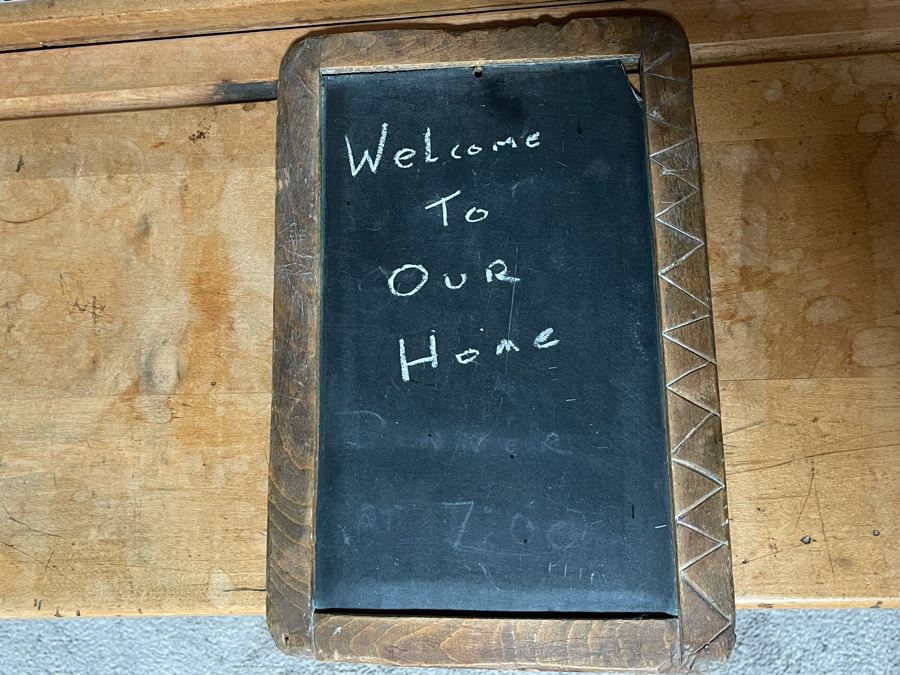 Welcome
To
OuR
Home
7:00